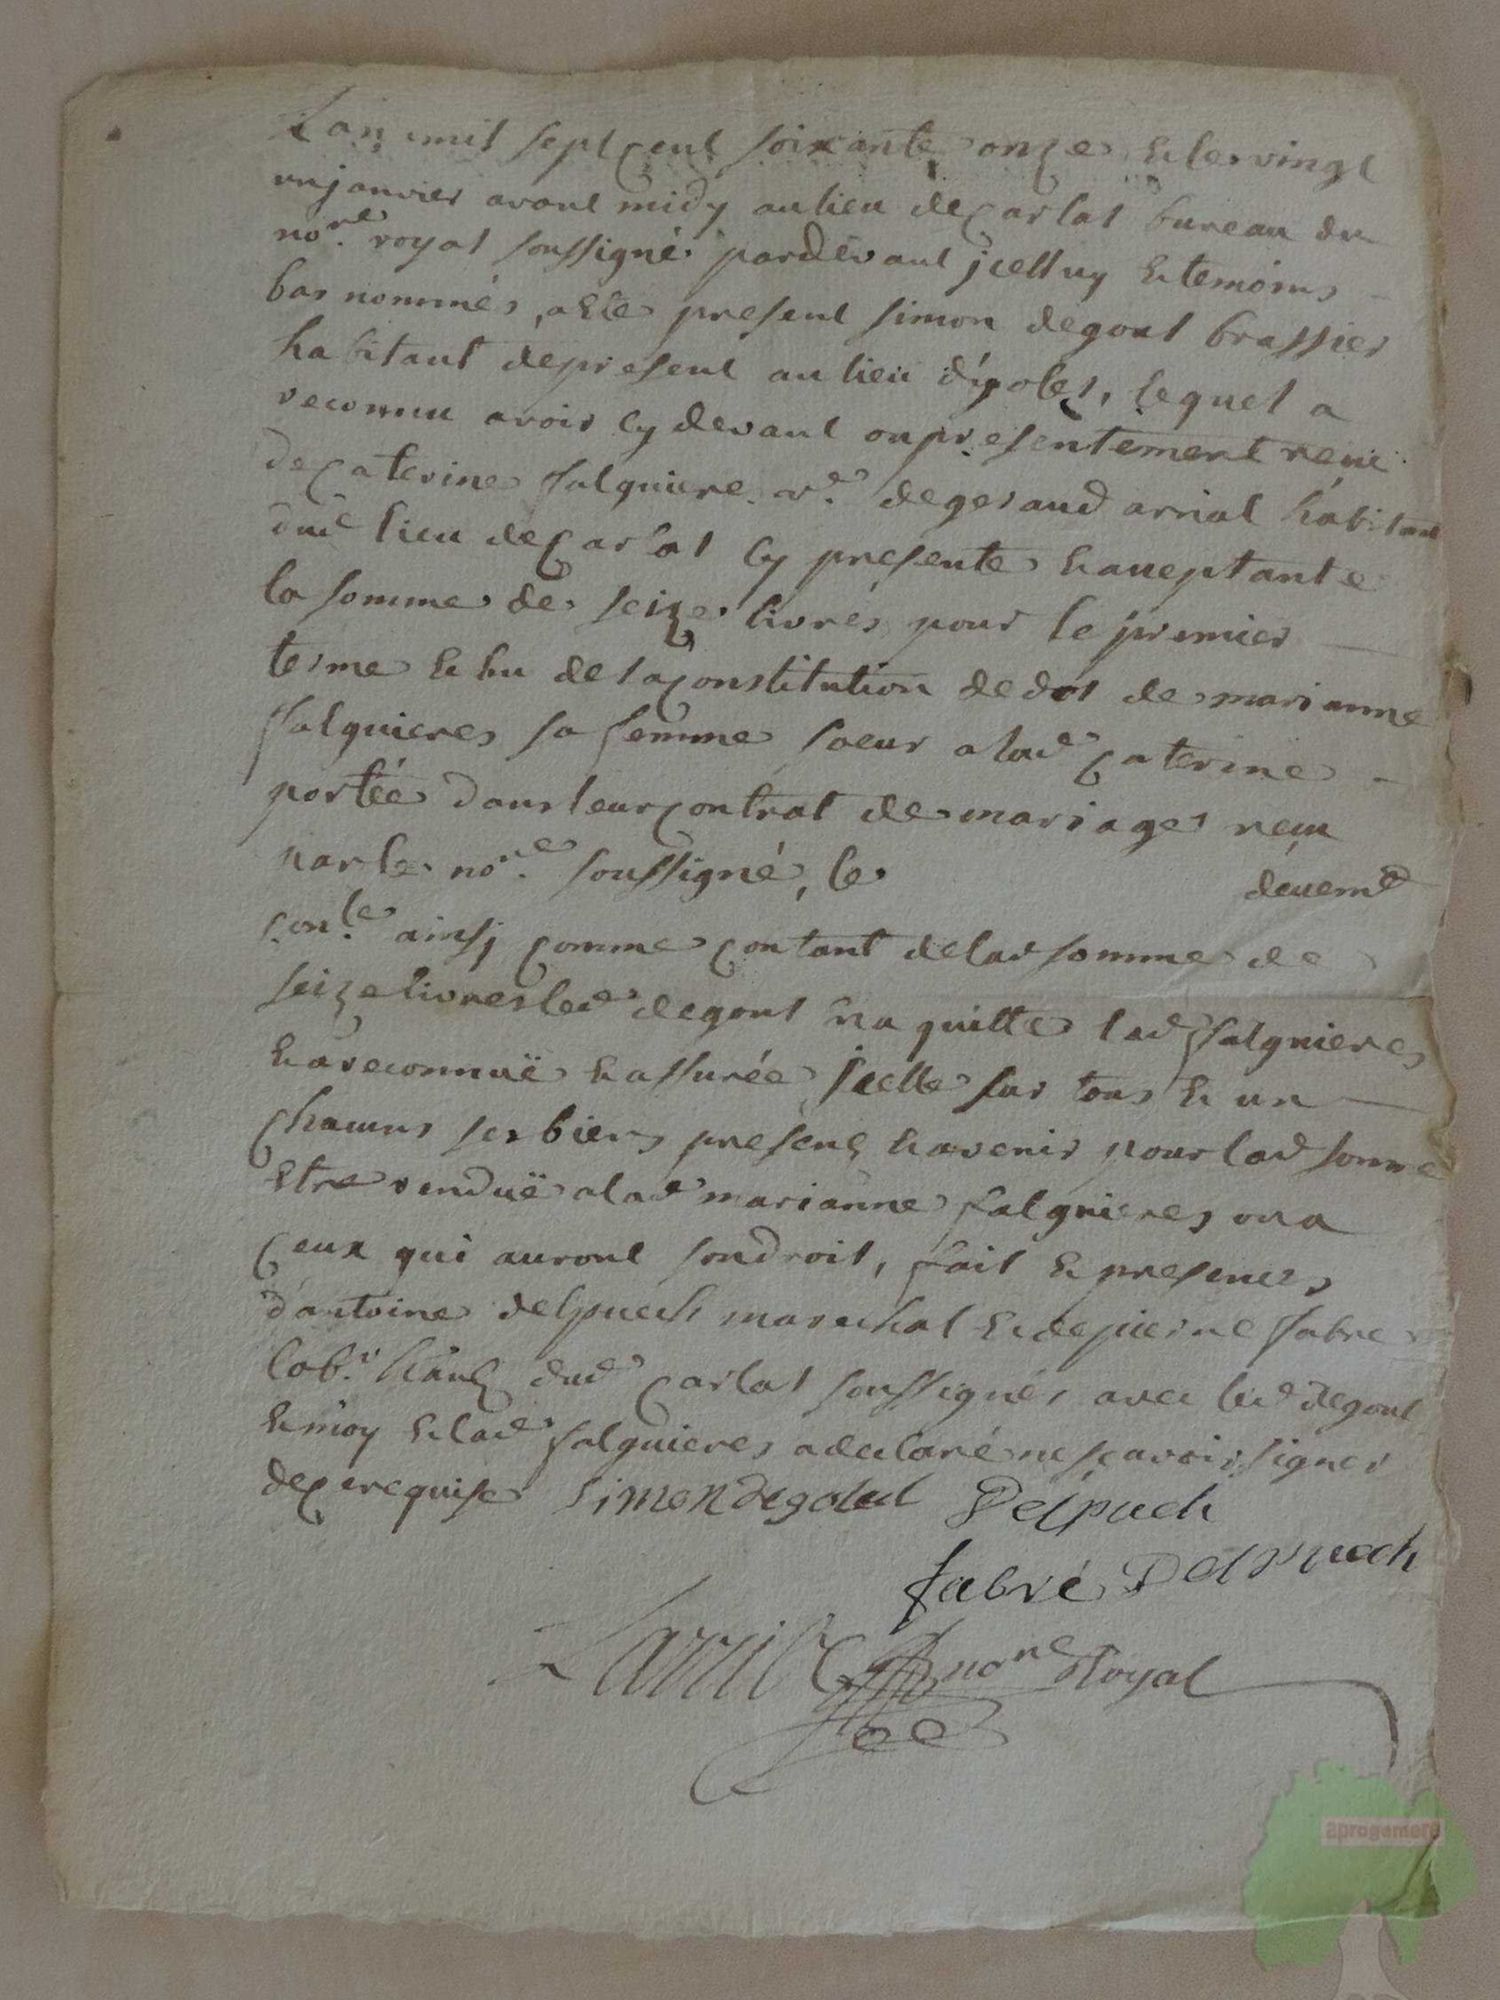 Lan mil sept cent soixante onze & le vingt
un janvier avant midy au lieu de carlat bureau du
no.re royal soussigné pardevant jcelluy & temoins
bas nommés, a été present simon degoul brassier
habitant de present au lieu d'ygoles, lequel a
reconnu avoir cy devant ou presentement recu
de caterine falguiere v.e de geraud arrial habitant
dud lieu de carlat cy presente & acceptante
la somme de seize livres pour le premier
terme & bu de la constitution de dot de marianne
falguieres sa femme soeur a lad.e caterine
portée dans leur contrat de mariage recu
par le no.re soussigné, le decem.e
con.le ainsj comme contant de lad somme de
seize livres led degoul en a quitte lad falguieres
& a reconnuë & assurée jcelle sur tous & un
chacuns ses biens presens & avenir pour lad somme
etre renduë a lad marianne falguieres ou a
ceux qui auront son droit, fait & presences
d'antoine delpuech marechal & de pierre fabre
lab.r hans dud carlat soussignés avec led degoul
& moy & lad falguieres a declaré ne scavoir signer
de ce requise simon degoul Delpuech
fabré Delpuech
no.re Royal
aprogemere